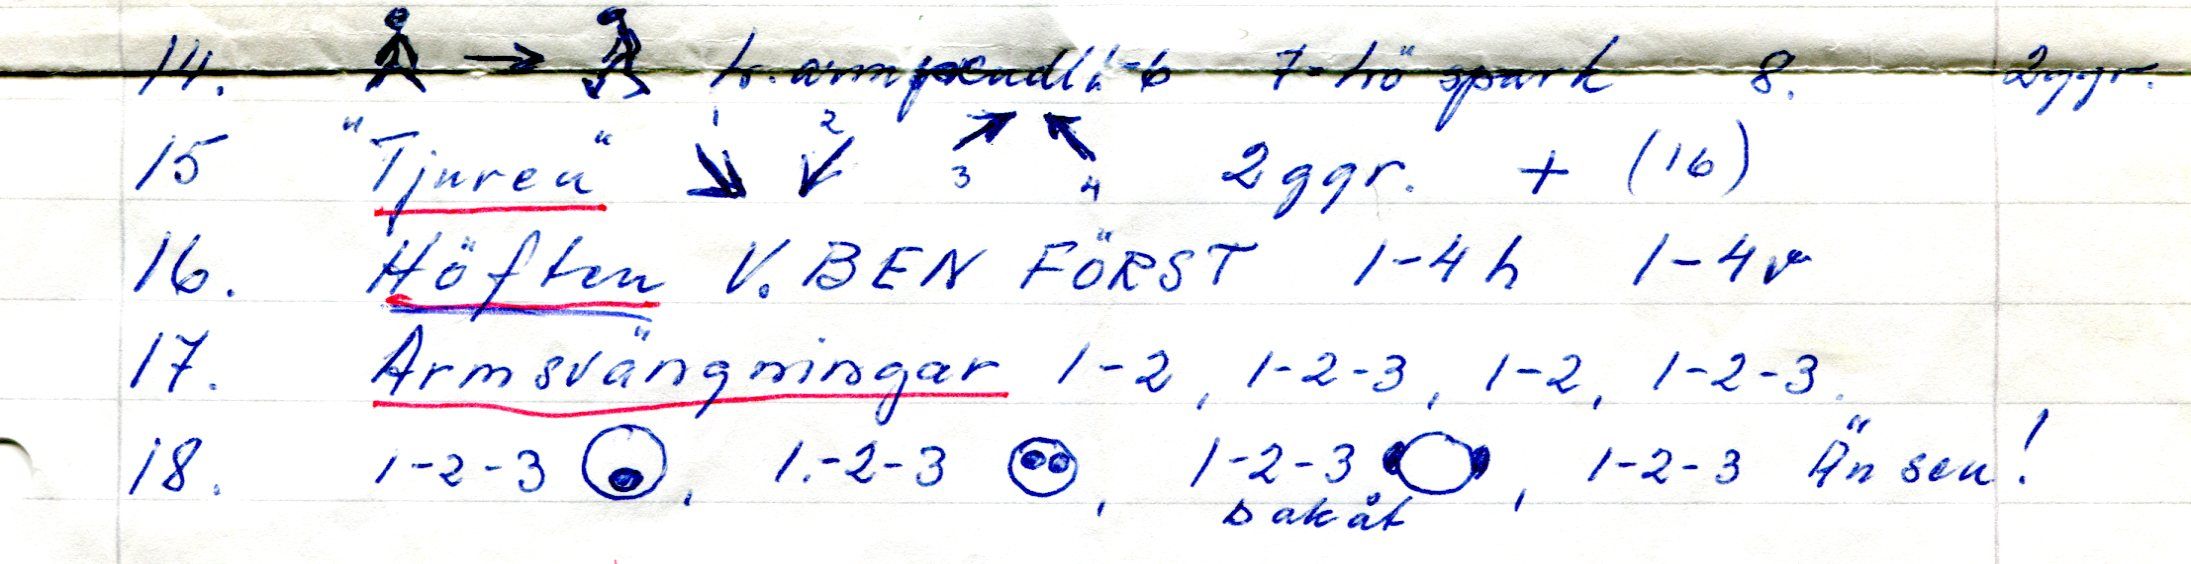 14. → h. armpendl 1-6 7-hö spark 8. 2ggr.
15 "Tjuren" 1 ↘ 2 ↙ 3 ↗ 4 ↖ 2ggr. + (16)
16. Höften V. BEN FÖRST 1-4 h 1-4 v
17. Armsvängningar 1-2, 1-2-3, 1-2, 1-2-3.
18. 1-2-3 , 1.-2-3 , 1-2-3 , 1-2-3 Än sen!
bakåt